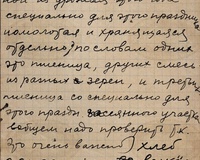 специально для этого праздника
помолотая и хранящаяся
отдельно, по словам одних
это пшеница, других смесь
из разных зерен, и третьих
пшеница со специально для
этого праздн засеянного участка
вобщем надо проверить Т.К.
это очень важно) хлеб